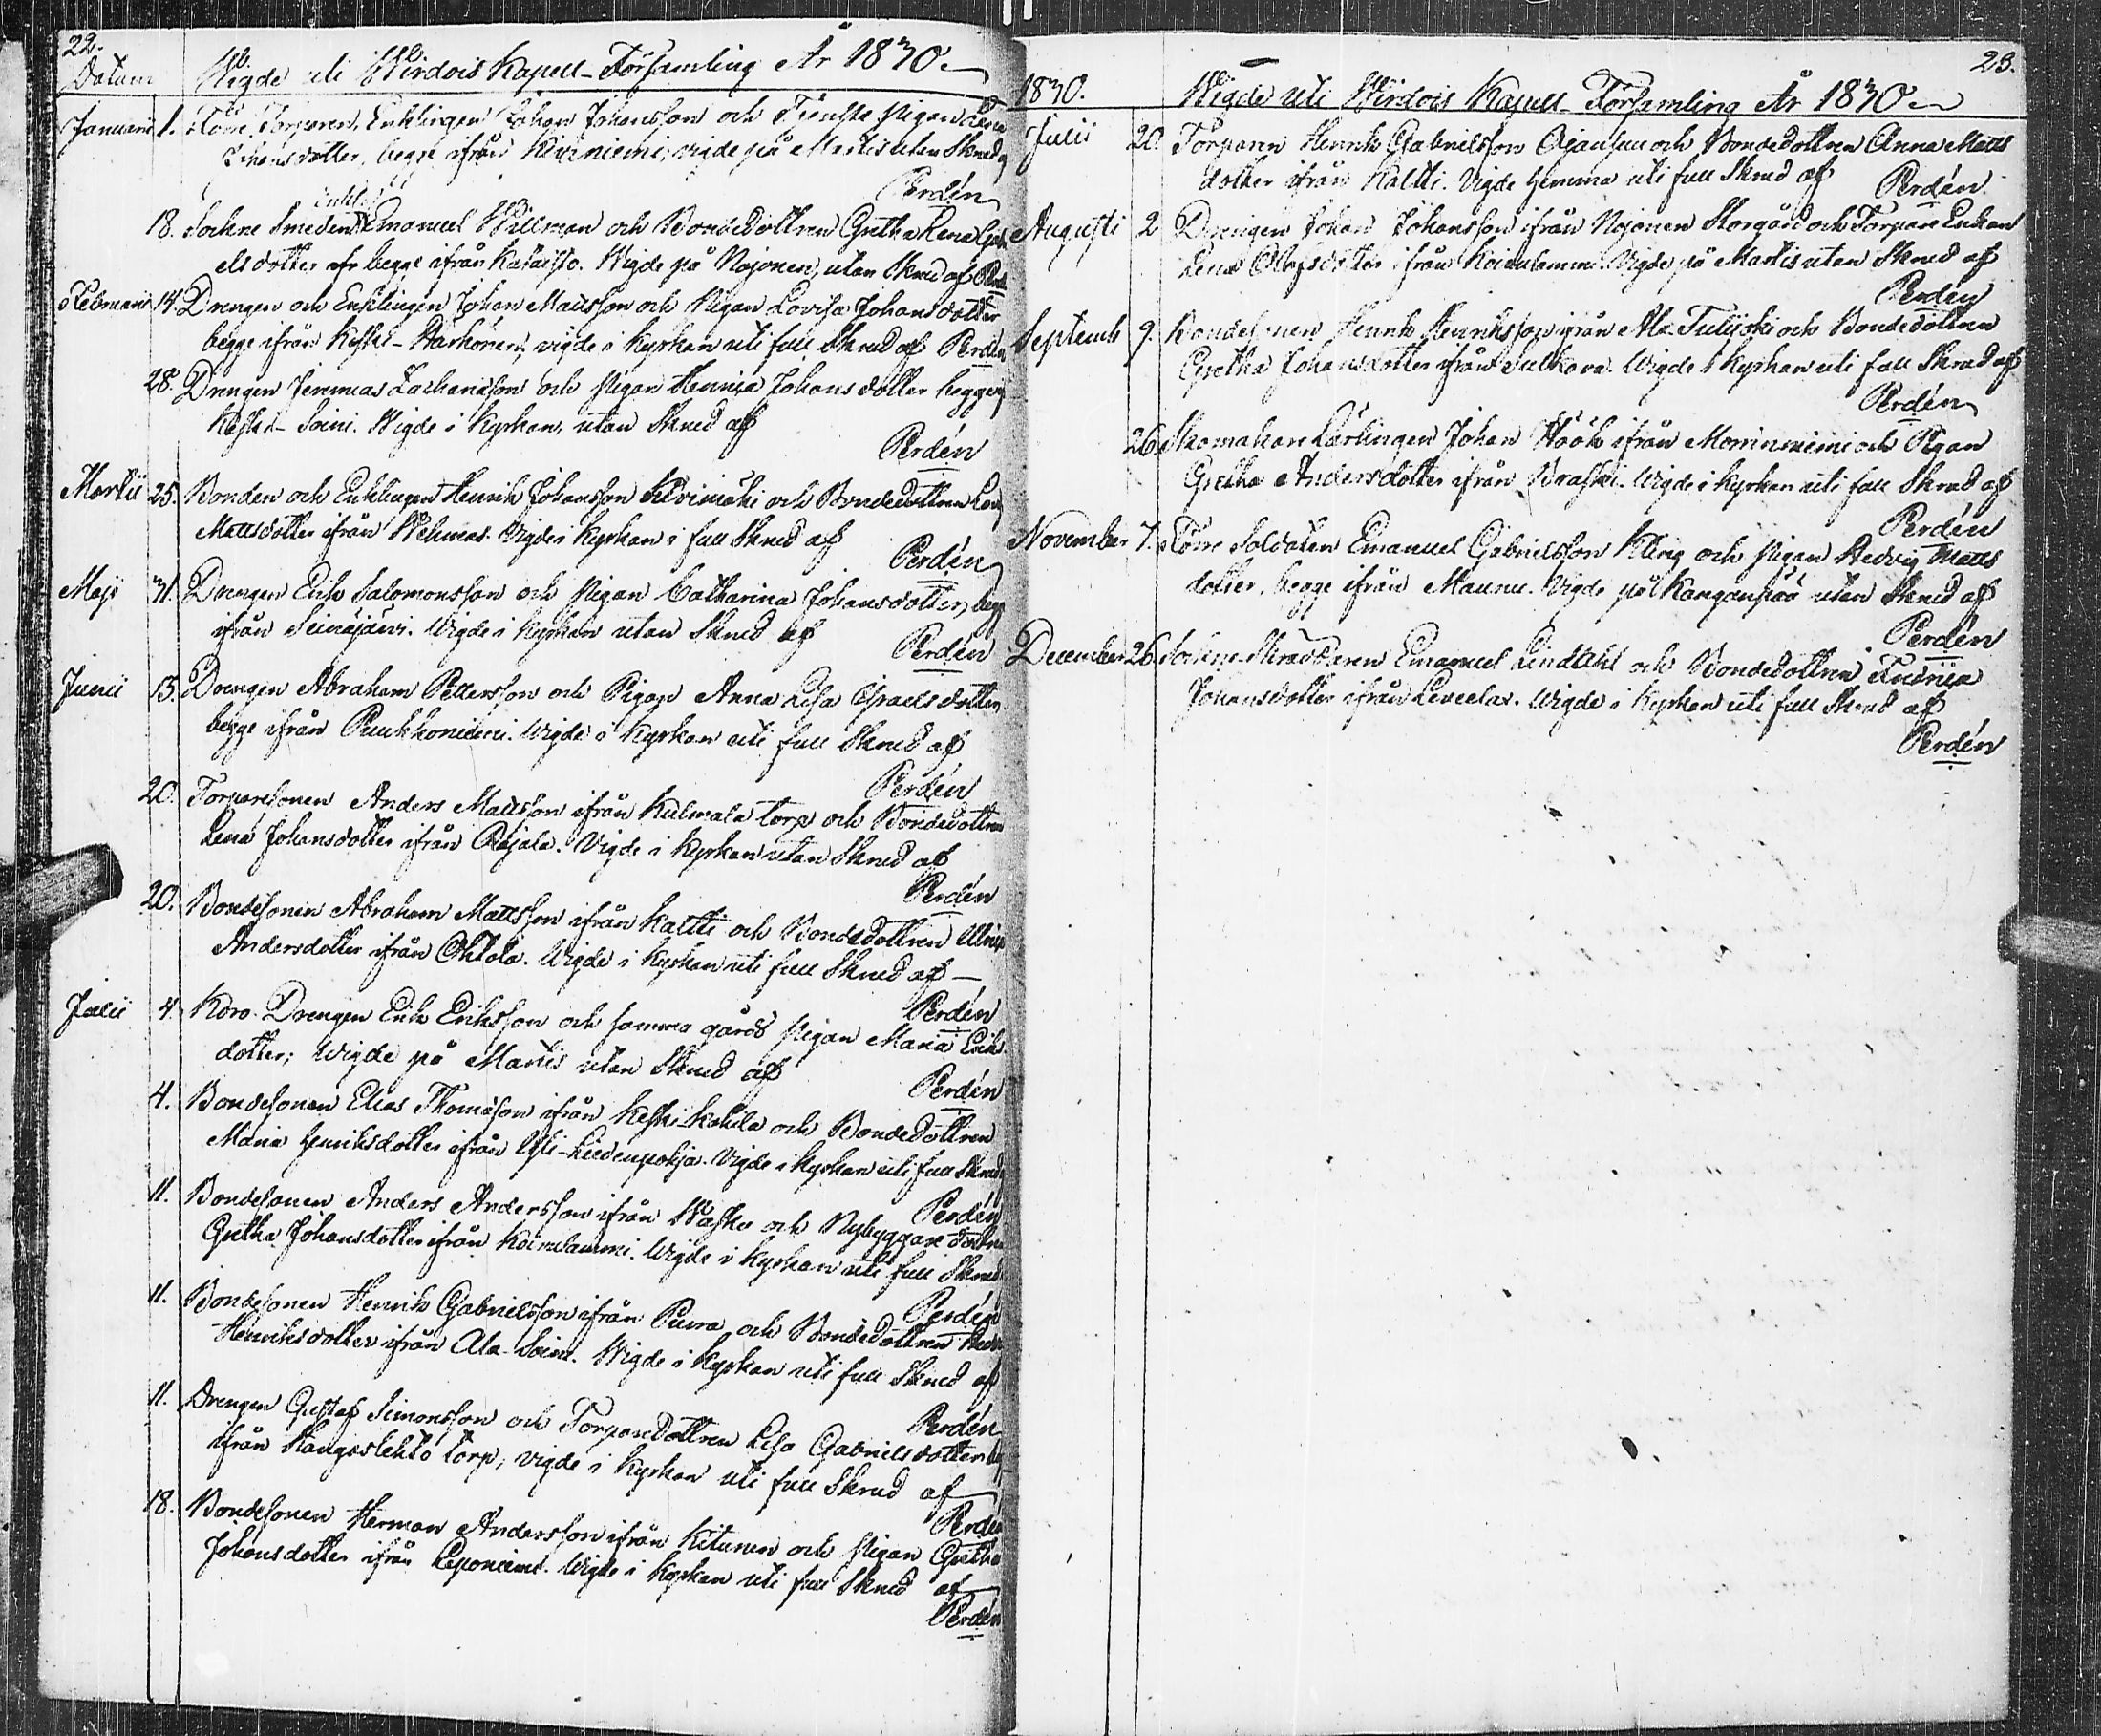 22.
Datum Wigde uti Wirdois Kapell-Församling År 1830.
Januarii 1. Förre Torparen, Enklingen Johan Johansson och Tjenste Pigan Lena
Johansdotter, begge ifrån Kivniemi; vigde på Martis utan Skrud af
Perdén
Enkling
18. Sockne Smeden Emanuel Willman och Bondedottren Gretha Lena Gabri
elsdotter begge ifrån Kataisto. Wigde på Nojonen, utan Skrud af Perdén
Februarii 14. Drengen och Enklingen Johan Mattsson och Pigan Lovisa Johansdotter
begge ifrån Keski-Harhonen, vigde i Kyrkan uti full Skrud af Perdén
28. Drengen Jeremias Zachariasson och Pigan Henrica Johansdotter begge
Keski-Soini. Wigde i Kyrkan, utan Skrud af
Perdén
Martii 25. Bonden och Enklingen Henrik Johansson Kivimäki och Bondedottren
Mattsdotter ifrån Wehmas. Vigde i Kyrkan i full Skrud af
Perdén
Maji 31. Drengen Erik Salomonsson och Pigan Catharina Johansdotter, begge
ifrån Seinäjärvi. Wigde i Kyrkan utan Skrud af
Perdén
Junii 13. Drengen Abraham Pettersson och Pigan Anna Lisa Israelsdotter
begge ifrån Puukkoniemi. Wigde i Kyrkan uti full Skrud af
Perdén
20. Torparesonen Anders Mattsson ifrån Kulmala torp och Bondedottren
Lena Johansdotter ifrån Rajala. Vigde i Kyrkan utan Skrud af
Perdén
20. Bondesonen Abraham Mattsson ifrån Kaltti och Bondedottren Ulrica
Andersdotter ifrån Ohtola. Wigde i Kyrkan uti full Skrud af
Perdén
Julii 4. Koro Drengen Erik Eriksson och samma gårds Pigan Maria Eriks
dotter; Wigde på Martis utan Skrud af
Perdén
4. Bondesonen Elias Thomasson ifrån Keski-Kohila och Bondedottren
Maria Henriksdotter ifrån Yli-Liedenpohja. Vigde i Kyrkan uti full Skrud
Perdén
11. Bondesonen Anders Andersson ifrån Wasko och Nybyggare dottren
Gretha Johansdotter ifrån Koirulammi. Wigde i Kyrkan uti full Skrud
Perdén
11. Bondesonen Henrik Gabrielsson ifrån Purra och Bondedottren
Henriksdotter ifrån Ala-Soini. Wigde i Kyrkan uti full Skrud af
Perdén
11. Drengen Gustaf Simonsson och Torparedottren Lisa Gabrielsdotter
ifrån Kangaslehto torp; vigde i Kyrkan uti full Skrud af
Perdén
18. Bondesonen Herman Andersson ifrån Kitunen och Pigan Gretha
Johansdotter ifrån Leponiemi. Wigde i Kyrkan uti full Skrud af
Perdén
23.
1830. Wigde uti Wirdois Kapell-Församling År 1830
Julii 20. Torparen Henrik Gabrielsson Ojansuu och Bondedottren Anna Matts
dotter ifrån Kaltti. Vigde hemma uti full Skrud af Perdén.
Augusti 2. Drengen Johan Johansson ifrån Nojonen Storgård och Torpare Enkan
Lena Olofsdotter ifrån Koirulammi. Vigde på Martis utan Skrud af
Perdén
Septemb 9. Bondesonen Henrik Henriksson ifrån Ala-Tulijoki och Bondedottren
Gretha Johansdotter ifrån Sulkava. Wigde i Kyrkan uti full Skrud af
Perdén
26 Skomakare Lärlingen Johan Höök ifrån Monninniemi och Pigan
Gretha Andersdotter ifrån Braski. Wigde i Kyrkan uti full Skrud af
Perdén
November 7. Förre Soldaten Emanuel Gabrielsson Kling och Pigan Hedvig Matts
dotter, begge ifrån Maunu. Vigde på Kangaspää utan Skrud af
Perdén
December 26. Sockne Skräddaren Emanuel Lindahl och Bondedottren Fredrica
Johansdotter ifrån Leveelax. Wigde i Kyrkan uti full Skrud af
Perdén